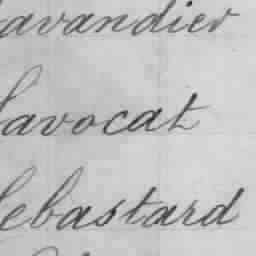 Lavandier
Lavocat
Lebastard